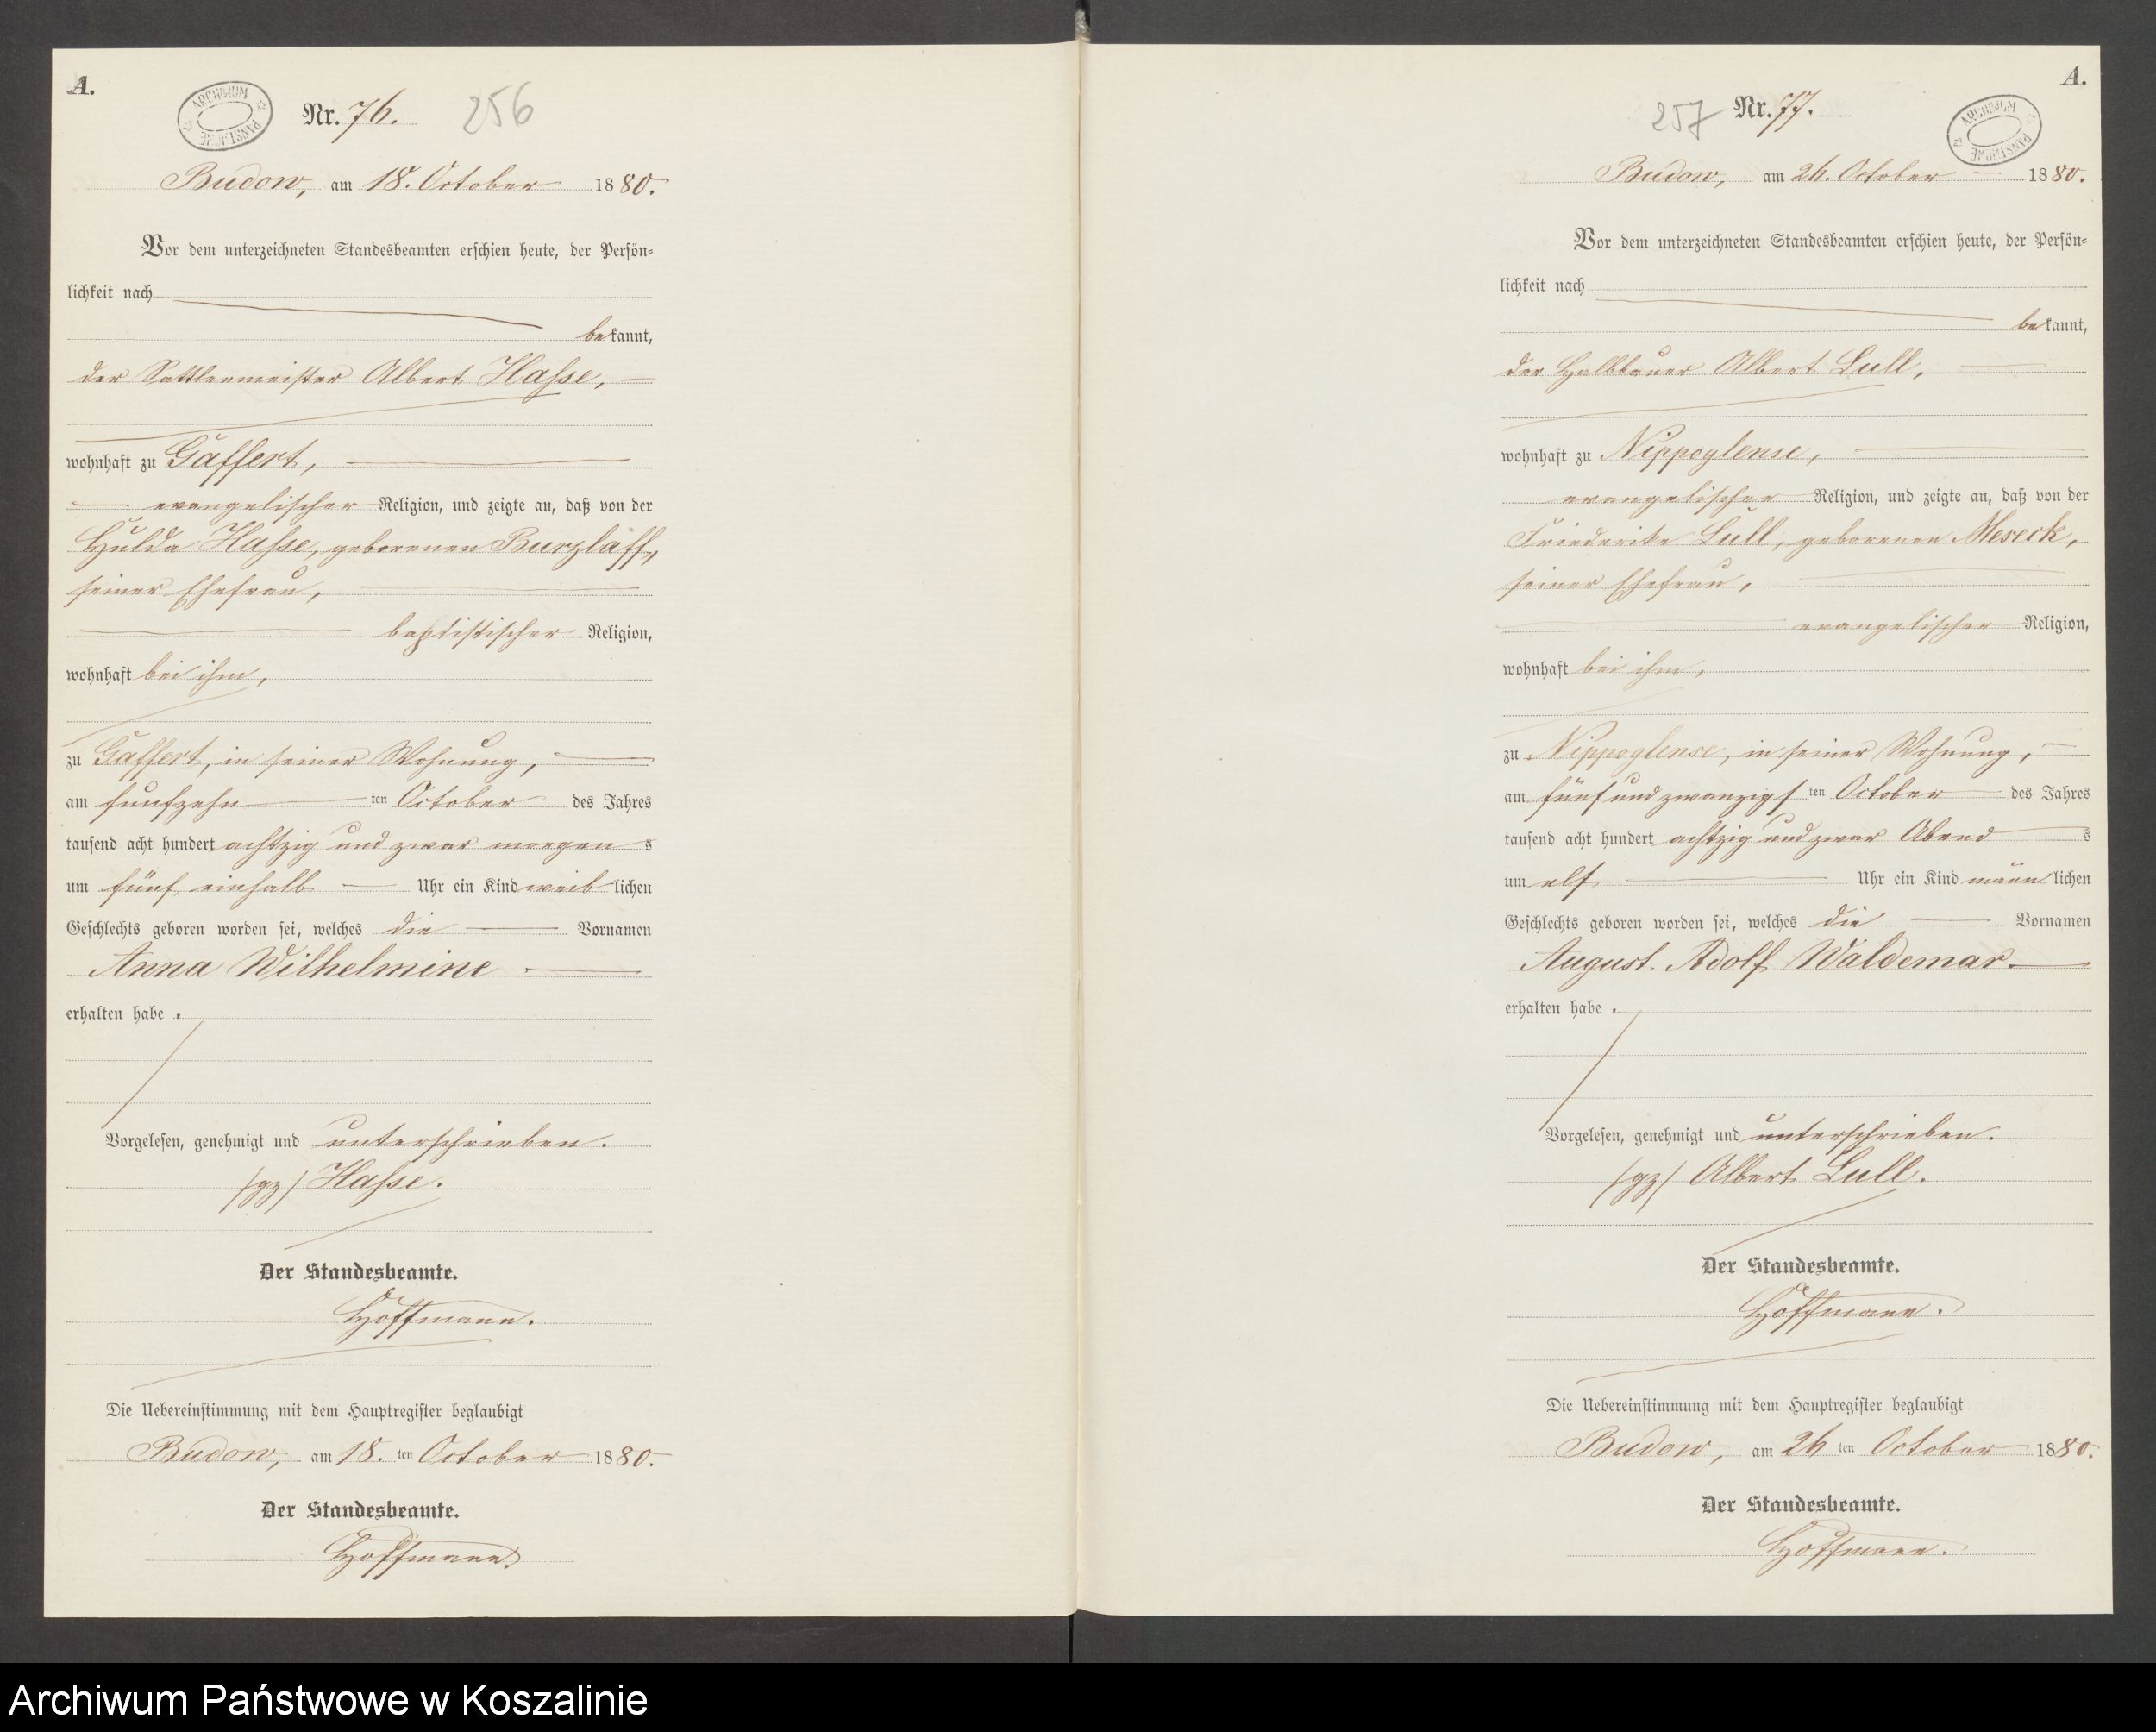 A.
ARCHIWUM PAŃSTWOWE
Nr. 76. 256
Budow, am 18. October 1880.
Vor dem unterzeichneten Standesbeamten erschien heute, der Persön-
lichkeit nach
bekannt,
der Sattlermeister Albert Hasse,
wohnhaft zu Gaffert,
evangelischer Religion, und zeigte an, daß von der
Hulda Hasse, geborenen Burzlaff,
seiner Ehefrau,
baptistischer Religion,
wohnhaft bei ihm,
zu Gaffert, in seiner Wohnung,
am fünfzehn ten October des Jahres
tausend acht hundert achtzig und zwar morgen s
um fünf einhalb Uhr ein Kind weib lichen
Geschlechts geboren worden sei, welches die Vornamen
Anna Wilhelmine
erhalten habe.
Vorgelesen, genehmigt und unterschrieben.
/gz/ Hasse.
Der Standesbeamte.
Hoffmann.
Die Uebereinstimmung mit dem Hauptregister beglaubigt
Budow, am 18. ten October 1880.
Der Standesbeamte.
Hoffmann.
A.
257 Nr. 77.
ARCHIWUM PAŃSTWOWE
Budow, am 26. October 1880.
Vor dem unterzeichneten Standesbeamten erschien heute, der Persön-
lichkeit nach
bekannt,
der Halbbauer Albert Lull,
wohnhaft zu Nippoglense,
evangelischer Religion, und zeigte an, daß von der
Friederike Lull, geborenen Meseck,
seiner Ehefrau,
evangelischer Religion,
wohnhaft bei ihm,
zu Nippoglense, in seiner Wohnung,
am fünfundzwanzigs ten October des Jahres
tausend acht hundert achtzig und zwar Abend s
um elf Uhr ein Kind männ lichen
Geschlechts geboren worden sei, welches die Vornamen
August Adolf Waldemar
erhalten habe.
Vorgelesen, genehmigt und unterschrieben.
/gz/ Albert Lull.
Der Standesbeamte.
Hoffmann.
Die Uebereinstimmung mit dem Hauptregister beglaubigt
Budow, am 26 ten October 1880.
Der Standesbeamte.
Hoffmann.
Archiwum Państwowe w Koszalinie